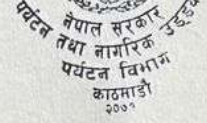 नेपाल सरकार
पर्यटन तथा नागरिक उड्ड
पर्यटन विभाग
काठमाडौं
२०७१